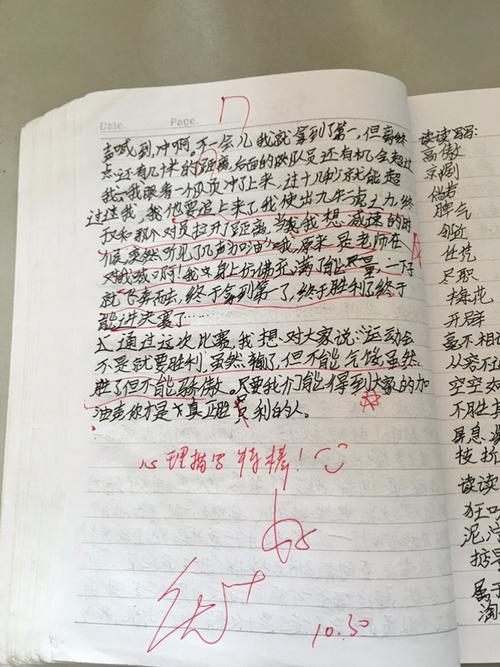 Date.
Page.
声喊到,冲啊,不一会儿我就拿到了第一,但离终
点还有几米的距离,后面的队员还有机会超过
我,一眼看一个队员冲了上来,过十几秒就能超
过我,他要追上来了,我使出九牛二虎之九,终
于和那个对员拉开了距离,当我想减速的时
候,突然听见了几声加油哦,原来是老师在
对我喊,啊!我身上仿佛充满了能量,一下子
就飞奔而去,终于拿到第一了,终于胜利了终于
能进决赛了……
通过这次比赛,我想对大家说:运动会
不是就要胜利,虽然输了,但不能气馁虽然
胜了但不能骄傲。只要我们能得到大家的加
油声你才是真正胜利的人。
心理描写特棒!
优+
10.30
读读写写:
高傲
京剧
脾气
邻近
尽职
梅花
开屏
毫不相
从容不
空空
不胜
屏息
枝折
读读
狂
泥泞
掂
属于
淘